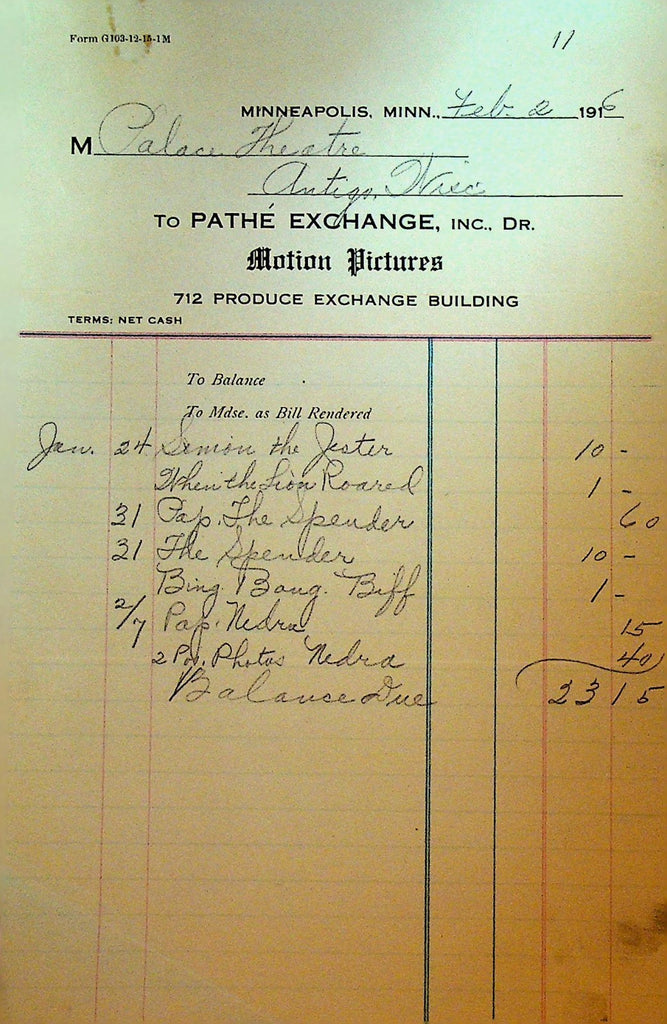 Form G103-12-15-1M
11
MINNEAPOLIS, MINN., Feb. 2 1916
M Palace Theatre
Antigo, Wisc
TO PATHÉ EXCHANGE, INC., DR.
Motion Pictures
712 PRODUCE EXCHANGE BUILDING
TERMS: NET CASH
To Balance
To Mdse. as Bill Rendered
Jan. 24 Simon the Jester 10 -
When the Lion Roared 1 -
31 Pap. The Spender 60
31 The Spender 10 -
Bing Bang Biff 1 -
2/7 Pap. Nedra 15
2 Photos Nedra 40
Balance Due 23 15